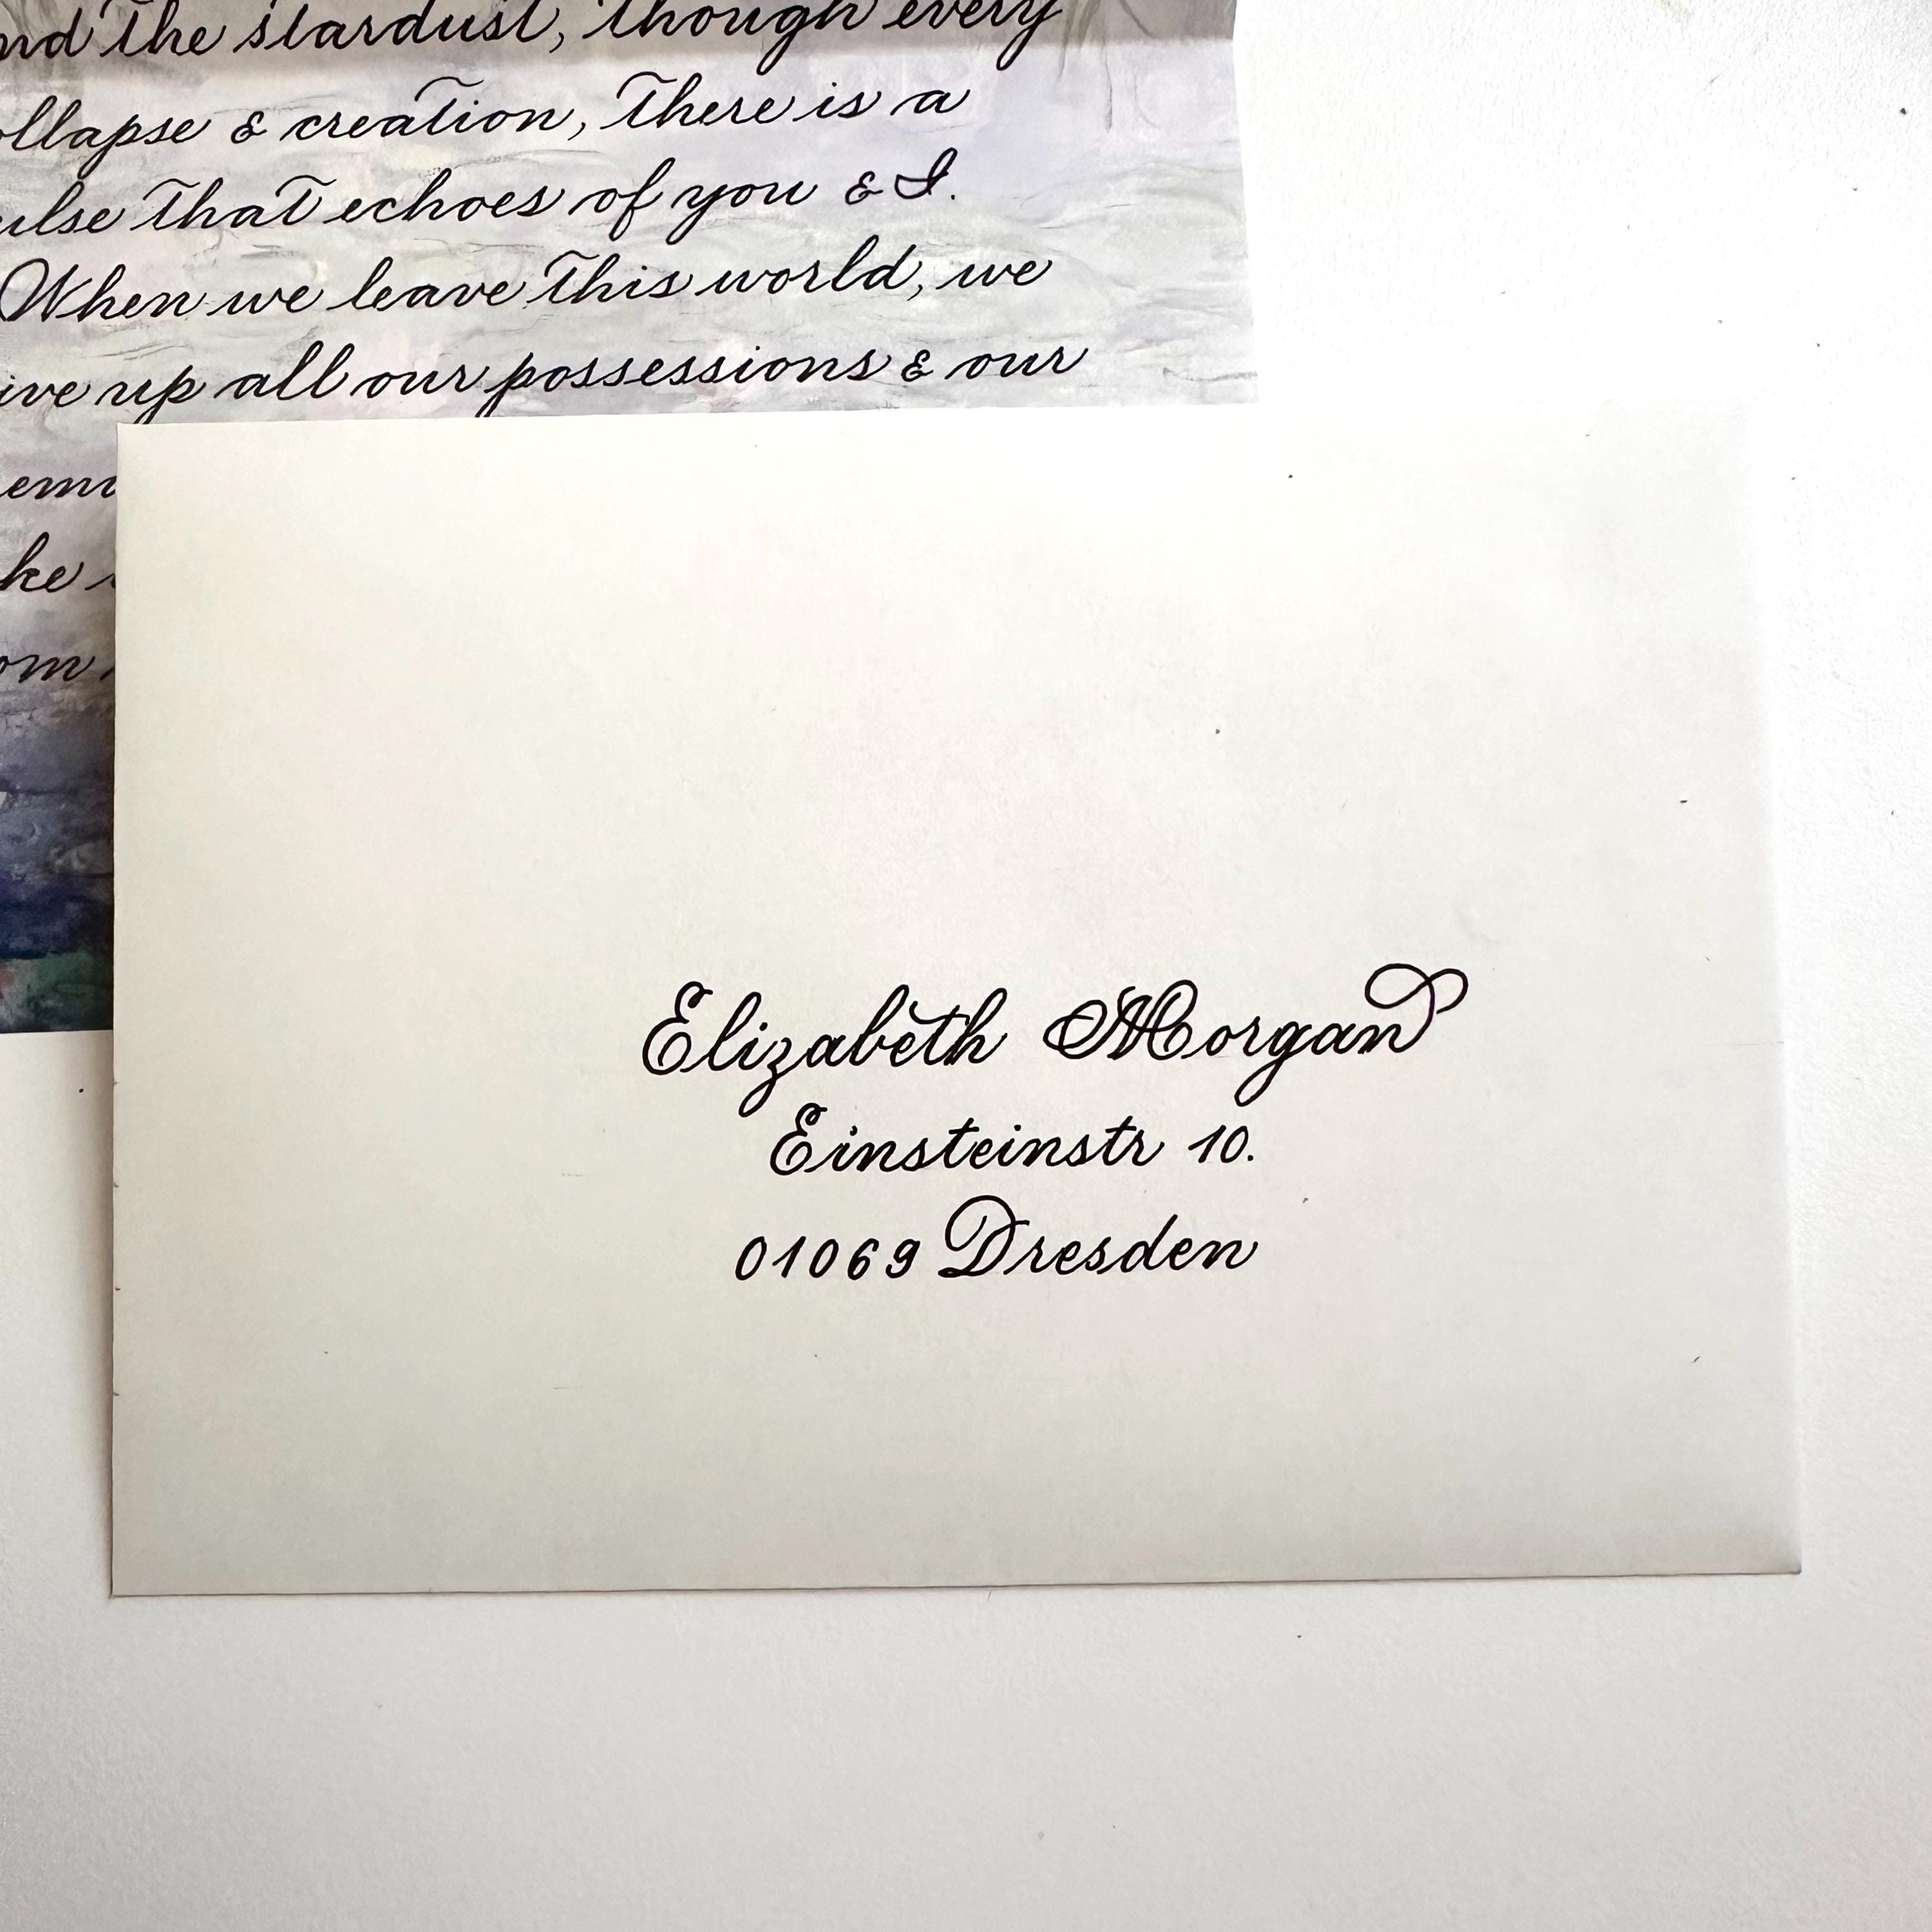 the stardust, though every
& creation, there is a
that echoes of you & I.
When we leave this world, we
up all our possessions & our
Elizabeth Morgan
Einsteinstr 10.
01069 Dresden